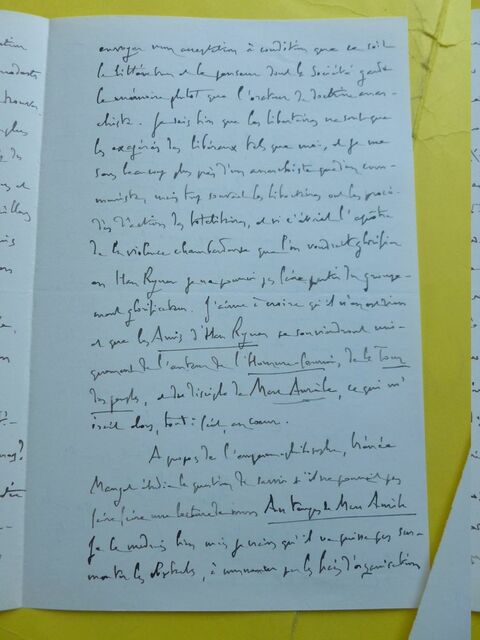 envoyer mon acceptation à condition que ce soit
le littérateur et le penseur dont la Société garde
la mémoire plutôt que l'orateur de doctrine anar-
chiste. Je sais bien que les libertaires ne sont que
les exagérés des libéraux tels que moi, et je me
sens beaucoup plus près d'un anarchiste que d'un com-
muniste, mais trop souvent les libertaires ont les procé-
dés d'action des totalitaires, et si c'était l'apôtre
de la violence que l'on voudrait glorifier
en Han Ryner je ne pourrais pas faire partie du groupe-
ment glorificateur. J'aime à croire qu'il n'en est rien
et que les Amis d'Han Ryner se souviendront uni-
quement de l'auteur de l'Homme-fourmi, de la Tour
des peuples, et du disciple de Marc Aurèle, ce qui m'
irait alors, tout à fait, au cœur.
A propos de l'empereur-philosophe,
étudie la question de savoir s'il ne pourrait pas
faire faire une lecture de mon Au temps de Marc Aurèle
Je le voudrais bien mais je crains qu'il ne puisse pas sur-
monter les obstacles, à commencer par les frais d'organisation